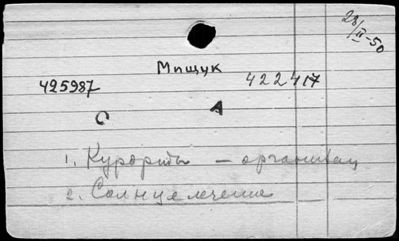 28/II-50
Мищук
425987 422417
С А
1. Курорты — организац
2. Солнцелечение